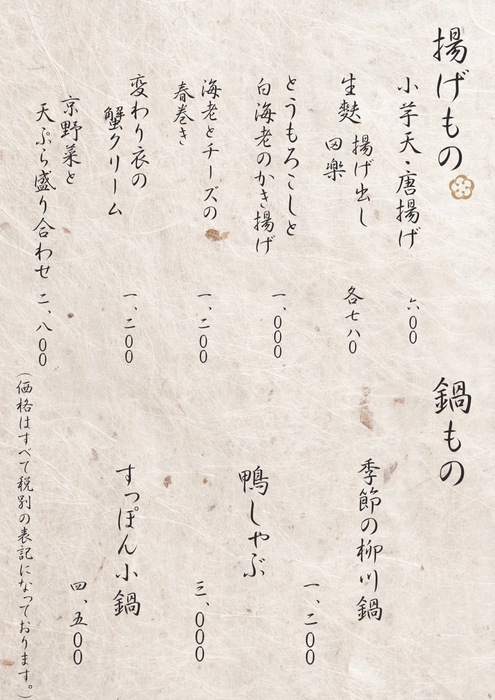 揚げもの
小芋天・唐揚げ
六〇〇
生麩 揚げ出し
田楽
各七八〇
とうもろこしと
白海老のかき揚げ
一、〇〇〇
海老とチーズの
春巻き
一、二〇〇
変わり衣の
蟹クリーム
一、二〇〇
京野菜と
天ぷら盛り合わせ
二、八〇〇
鍋もの
季節の柳川鍋
一、二〇〇
鴨しゃぶ
三、〇〇〇
すっぽん小鍋
四、五〇〇
（価格はすべて税別の表記になっております。）